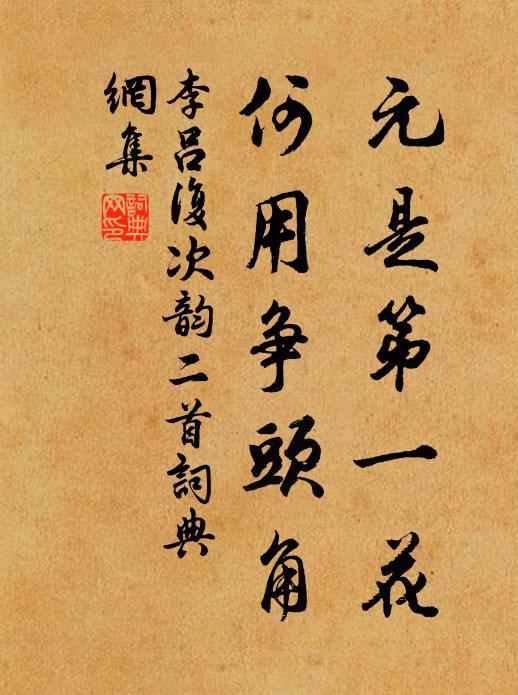 元是第一花
何用争頭角
李呂復次韵二首詞典
網集
詞典
网印